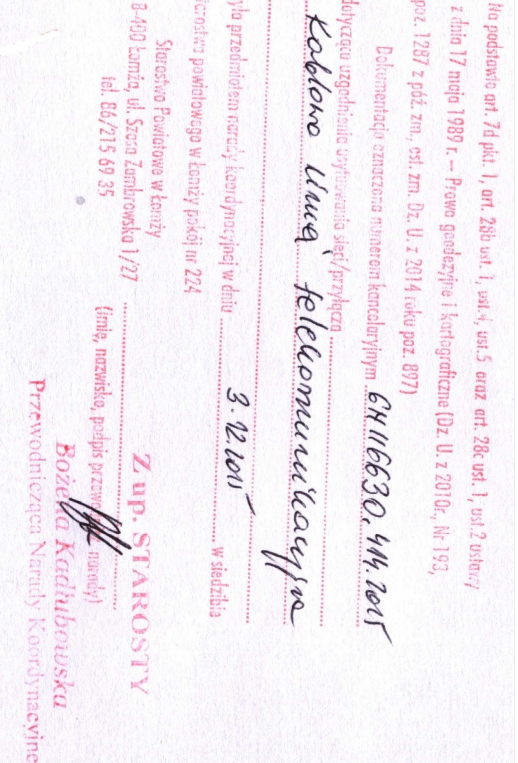 Na podstawie art. 7d pkt. 1, art. 28b ust. 1, ust.4, ust.5 oraz art. 28c ust. 1, ust.2 ustawy
z dnia 17 maja 1989 r. – Prawo geodezyjne i kartograficzne (Dz. U. z 2010r., Nr 193,
poz. 1287 z póź. zm., ost. zm. Dz. U. z 2014 roku poz. 897)
Dokumentacja oznaczona numerem kancelaryjnym GN.6630.414.2015
dotycząca uzgodnienia usytuowania sieci/przyłącza
Kablowa linia telekomunikacyjna
była przedmiotem narady koordynacyjnej w dniu 3.12.2015 w siedzibie
Starostwa powiatowego w Łomży pokój nr 224
Starostwo Powiatowe w Łomży
18-400 Łomża, ul. Szosa Zambrowska 1/27
tel. 86/215 69 35
Z up. STAROSTY
(imię, nazwisko, podpis przew narady)
Bożena Kadłubowska
Przewodnicząca Narady Koordynacyjnej